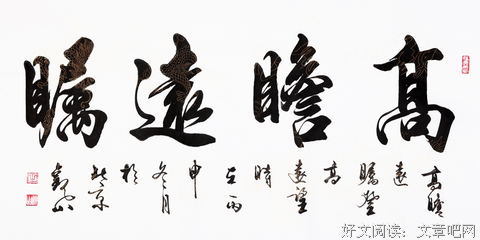 高瞻遠矚
高瞻
遠
矚登
高
遠望
時
在丙
申
冬月
於
北京
好文阅读：文章吧网